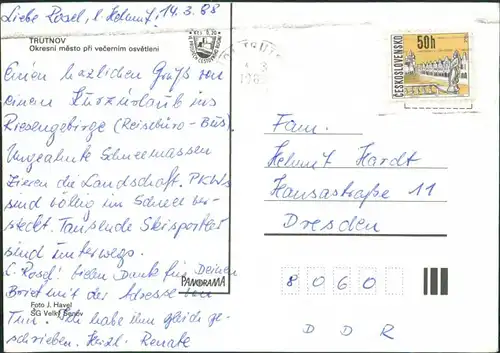 Liebe Rosel, l. Helmut, 14.3.88
TRUTNOV
Okresní město při večerním osvětlení
Kčs 0,30
ČESKOSLOVENSKO
50h
Einen herzlichen Gruß von
einem Kurzurlaub ins
Riesengebirge (Reisebüro-Bus)
Ungeahnte Schneemassen
zieren die Landschaft. PKWs
sind völlig im Schnee ver-
steckt. Tausende Skisportler
sind unterwegs.
L. Rosel! Vielen Dank für Deinen
Brief mit der Adresse von
Ich habe ihm gleich ge-
schrieben. Herzl. Renate
PANORAMA
Foto J. Havel
SG Velký Šenov
Fam.
Helmut Hardt
Hansastraße 11
Dresden
8060
DDR